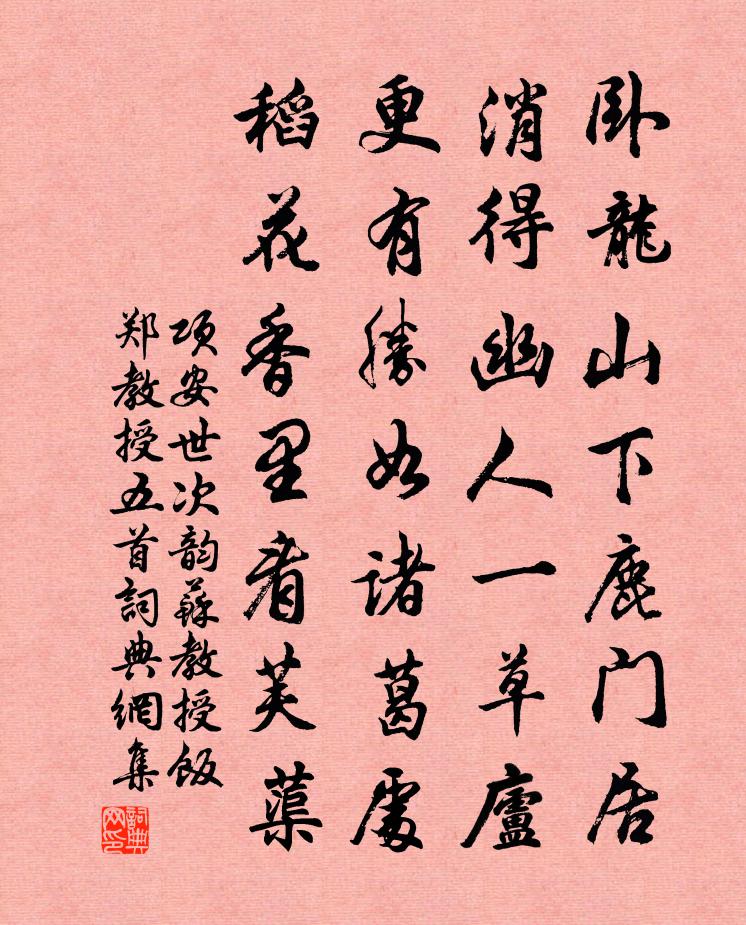 卧龍山下鹿门居
消得幽人一草廬
更有勝如诸葛處
稻花香里看芙蕖
项安世次韵蘇教授飯
郑教授五首詞典網集
詞典网印